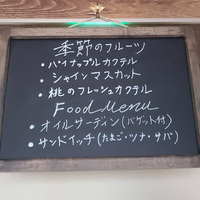 季節のフルーツ
・パイナップルカクテル
・シャインマスカット
・桃のフレッシュカクテル
Food Menu
・オイルサーディン(バゲット付)
・サンドイッチ(たまご・ツナ・サバ)